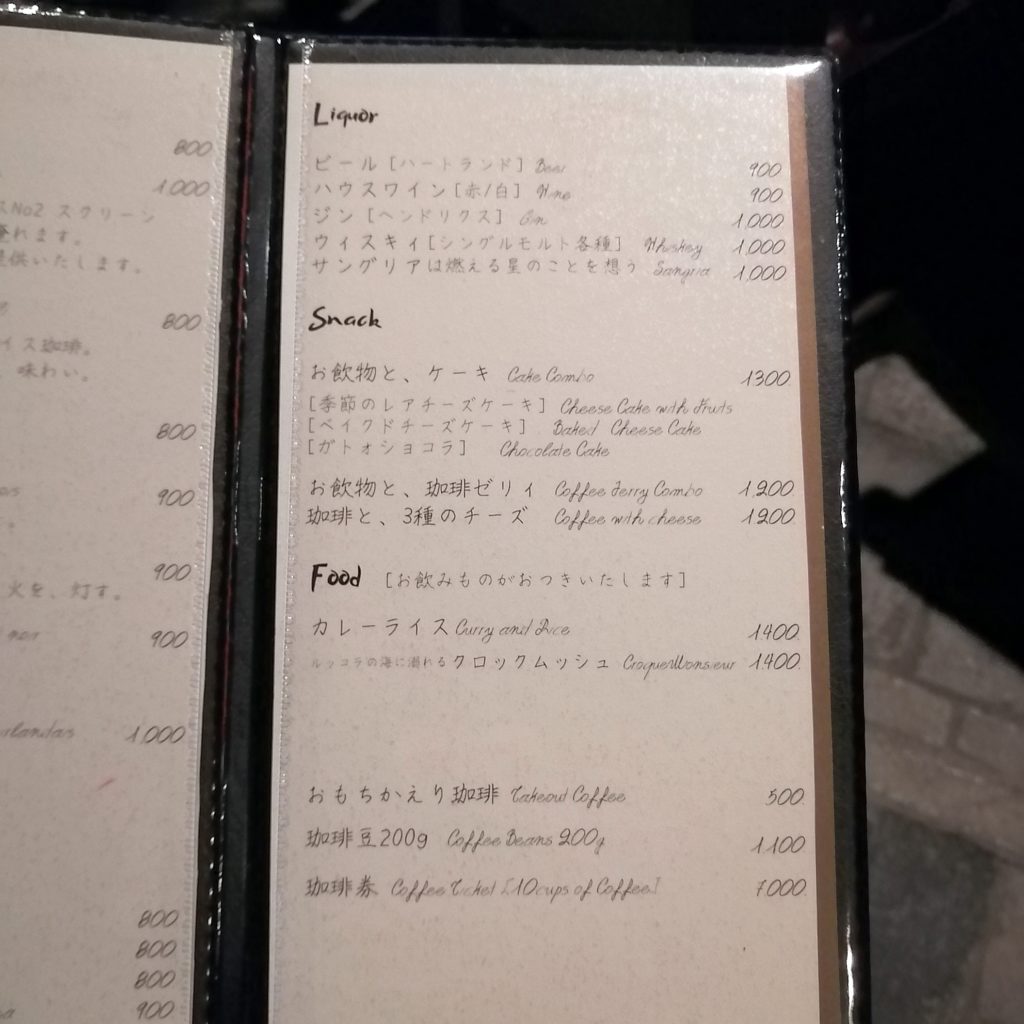 800
1,000
スNo2 スクリーン
れます。
提供いたします。
800
イス珈琲。
味わい。
800
900
900
火を、灯す。
900
1,000
800
800
800
900
Liquor
ビール [ハートランド] Beer 900
ハウスワイン [赤/白] Wine 900
ジン [ヘンドリクス] Gin 1,000
ウィスキィ [シングルモルト各種] Whiskey 1,000
サングリアは燃える星のことを想う Sangria 1,000
Snack
お飲物と、ケーキ Cake Combo 1300
[季節のレアチーズケーキ] Cheese Cake with Fruits
[ベイクドチーズケーキ] Baked Cheese Cake
[ガトォショコラ] Chocolate Cake
お飲物と、珈琲ゼリィ Coffee Jerry Combo 1,200
珈琲と、3種のチーズ Coffee with cheese 1200
Food [お飲みものがおつきいたします]
カレーライス Curry and Rice 1,400
ルッコラの海に溺れるクロックムッシュ CroqueMonsieur 1,400
おもちかえり珈琲 Takeout Coffee 500
珈琲豆200g Coffee Beans 200g 1,100
珈琲券 Coffee Ticket [10cups of Coffee] 7,000